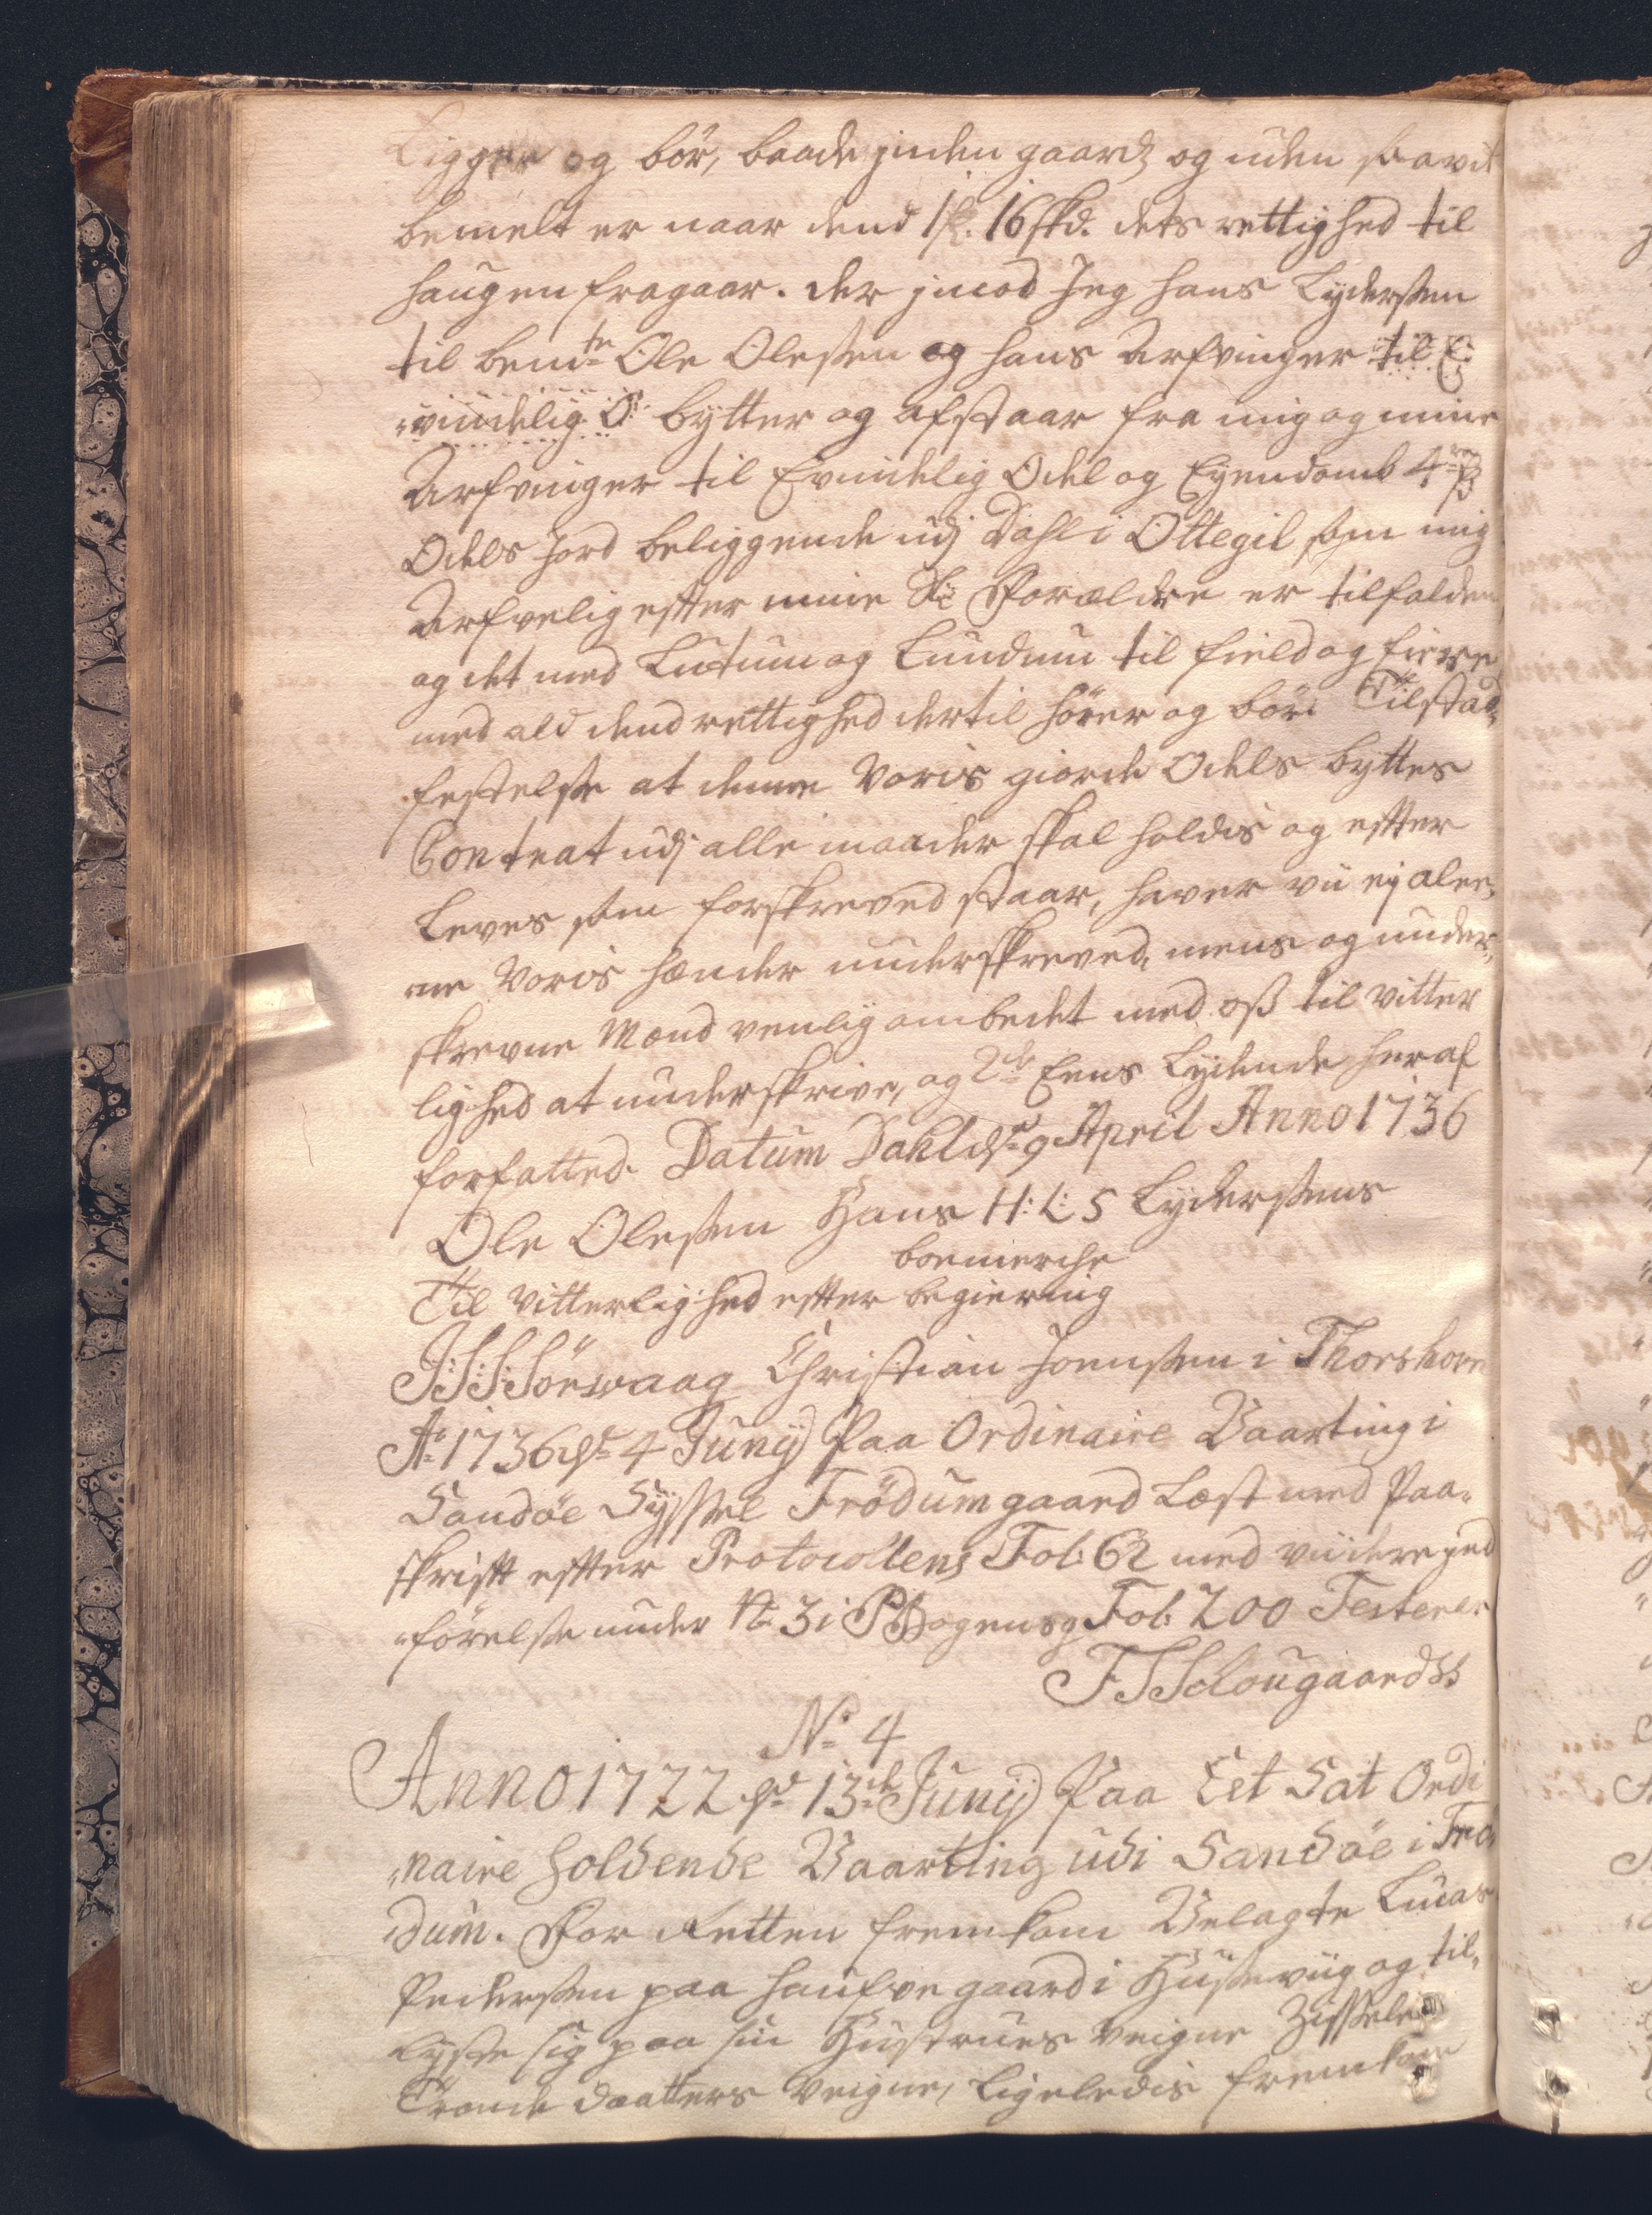 Ligger og bör, baade jnden gaards og uden saavit
bemelt er naar dend 16 skd. dets rettighed til
haugen fragaar. der jmod Jeg Hans Lydersen
til bemte Ole Olesen og hans Arfvinger til E:
vindelig O: bytter og afstaar fra mig og mine
Arfvinger til Evindelig Odel og Eyendomb 4
Odels Jord beliggende udj Dahl i Ottegil som mig
Arfvelig efter mine Forældre er tilfalden
og det med Lutum og Lundum til field og fiere
med ald dend rettighed dertil hører og bör. Til stad-
festelse at denne voris giorde Odels byttes
Contrat udj alle maader skal holdis og efter
Leves som forskreved staar, haver vii ej alee-
ne voris hænder underskreved, mens og under-
skrevne Mænd venlig ombedet med oss til vitter
lighed at underskrive, og 2de Eens Lydende her af
forfatted. Datum Dahl ds 9 April Anno 1736
Ole Olesen Hans H: L: S Lydersens
boemerche
Til vitterlighed efter begiering
J:S:S: Sörwaag Christian Joensen i Thorshavn
Ao 1736 ds 4 Junij Paa Ordinaire Vaarting i
Sandöe Syssel Frödum gaard Læst med Paa-
skrift efter Protocollens Fol: 62 med viidere jnd
förelse under No 3 i Fol: 200 Testerer
F S Schougaard SS
No 4
Anno 1722 ds 13de Junij Paa Eet Sat Ordi
naire holdende Vaarting udi Sandöe i Frö
dum. For Retten fremkom Velagte Lucas
Pedersen paa haufve gaard i Husevüg og til-
lyste sig paa sin Hustrues veigne Zissele
Tronde daatters veigne, ligeledis fremkom